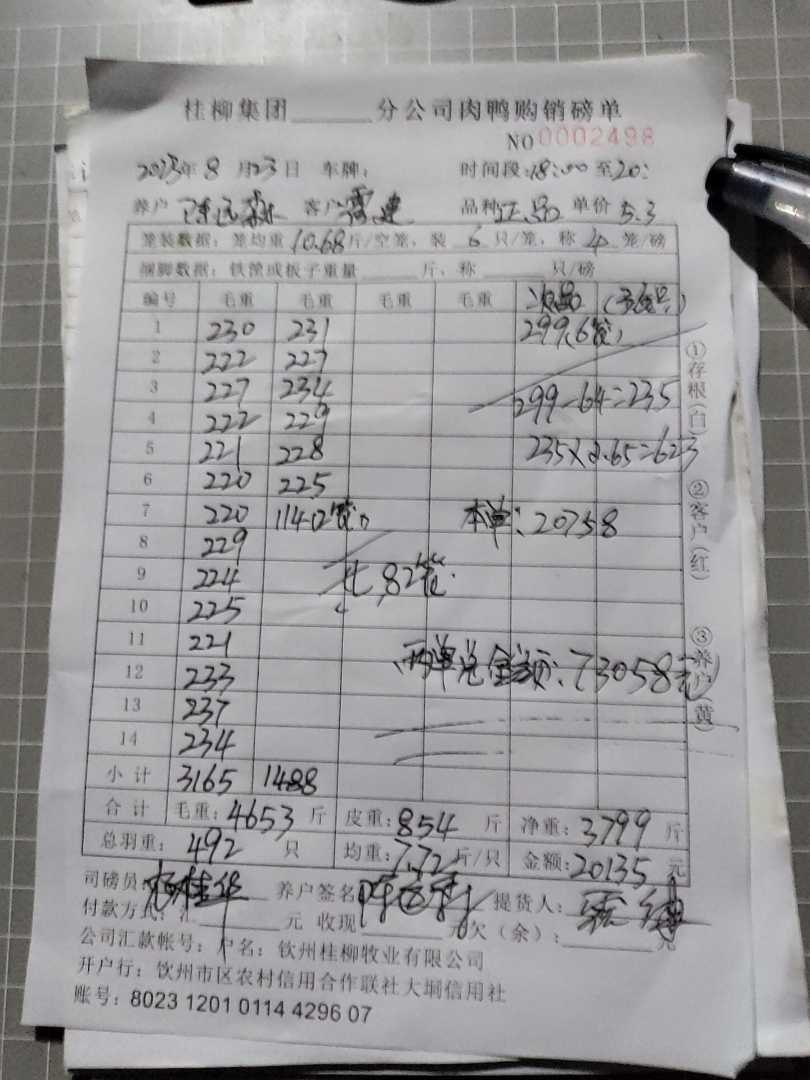 桂柳集团______分公司肉鸭购销磅单
NO 0002498
2023年8月23日 车牌: 时间段:18:00至20:
养户 客户 品种 正品 单价 5.3
笼装数据: 笼均重10.68斤/空笼, 装6只/笼, 称4笼/磅
捆脚数据: 铁筐或板子重量______斤, 称______只/磅
编号 毛重 毛重 毛重 毛重 次品
1 230 231 299(6笼)
2 222 227
3 227 234 299-64=235
4 222 229
5 221 228 235×2.65=623
6 220 225
7 220 114(2笼) 本单: 20758
8 229
9 224 共82笼.
10 225
11 221
12 233 两单总金额: 73058元
13 237
14 234
小计 3165 1488
合计 毛重: 4653斤 皮重: 854斤 净重: 3799斤
总羽重: 492只 均重: 7.72斤/只 金额: 20135元
司磅员: 养户签名: 提货人:
付款方式: 汇______元 收现______元 欠(余):______元
公司汇款帐号: 户名: 钦州桂柳牧业有限公司
开户行: 钦州市区农村信用合作联社大垌信用社
账号: 8023 1201 0114 4296 07
①存根(白) ②客户(红) ③养户(黄)